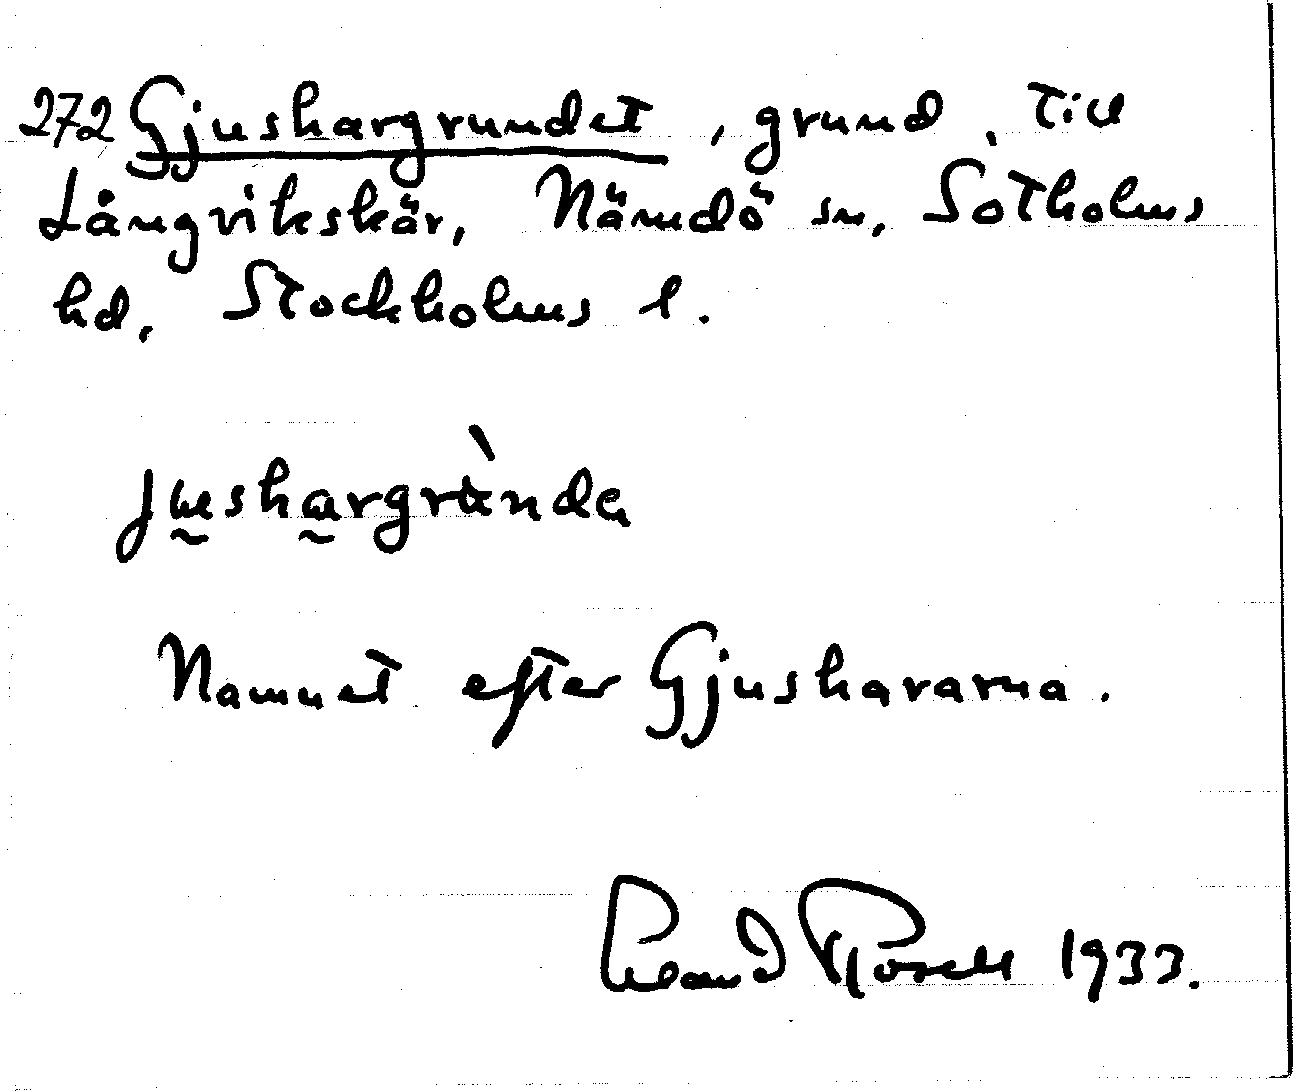 272 Gjushargrundet, grund, till
Långvikskär, Nämdö sn, Sotholms
hd, Stockholms l.
Namnet efter Gjushararna.
1933.